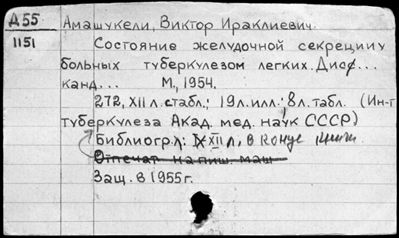 Д55
1151
Амашукели, Виктор Ираклиевич.
Состояние желудочной секреции у
больных туберкулезом легких. Дисс...
канд... М., 1954.
272, XII л. с табл.; 19 л. илл.; 8 л. табл. (Ин-т
туберкулеза Акад. мед. наук СССР)
Библиогр.: XII л., в конце книги
Отпечат. на пиш. маш.
Защ. в 1955г.